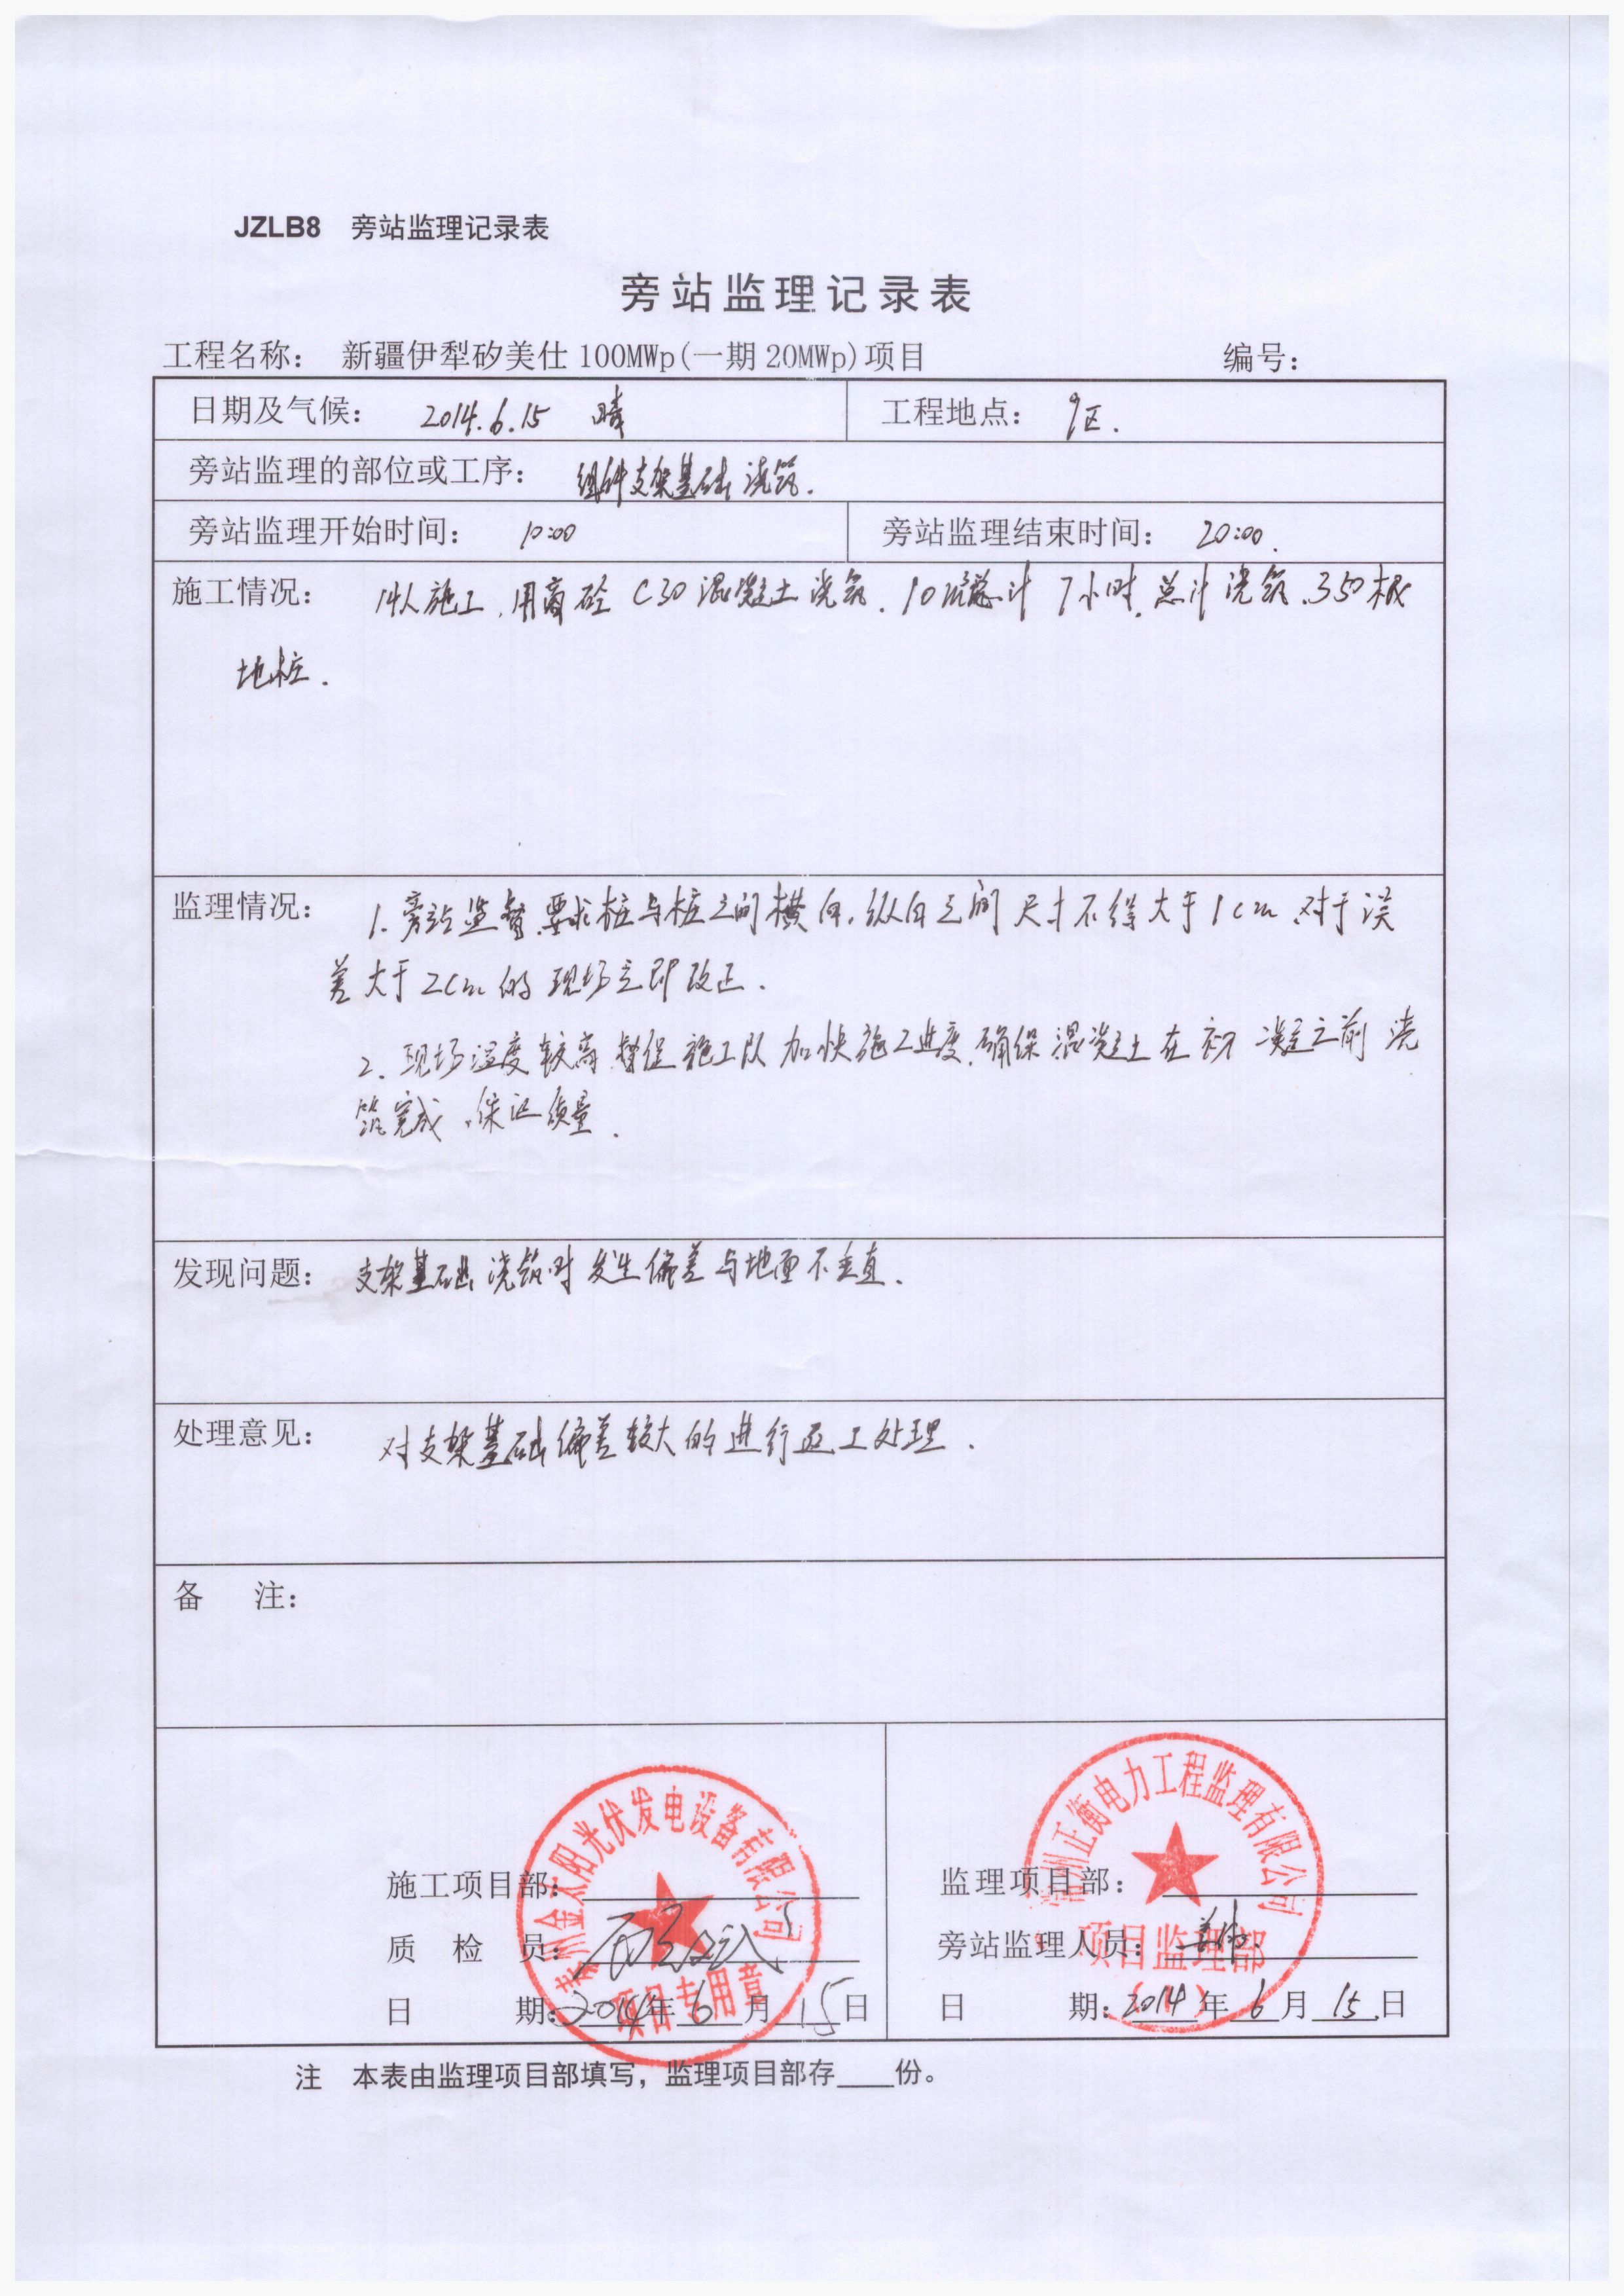 JZLB8 旁站监理记录表
旁站监理记录表
工程名称： 新疆伊犁矽美仕100MWp(一期20MWp)项目 编号：
日期及气候： 2014.6.15 晴 工程地点： 9区.
旁站监理的部位或工序： 组件支架基础浇筑.
旁站监理开始时间： 10:00 旁站监理结束时间： 20:00.
施工情况： 14人施工.用商砼C30混凝土浇筑.10 总计7小时.总计浇筑.350根
地桩.
监理情况： 1.旁站监督.要求桩与桩之间横向.纵向之间尺寸不得大于1cm.对于误
差大于2cm的现场立即改正.
2.现场温度较高.督促施工队加快施工进度.确保混凝土在初凝之前浇
筑完成.保证质量.
发现问题： 支架基础浇筑时发生偏差与地面不垂直.
处理意见： 对支架基础偏差较大的进行返工处理.
备 注：
州金太阳光伏发电设备有限公司
项目专用章
常州正衡电力工程监理有限公司
项目监理部
施工项目部： 监理项目部：
质 检 员： 旁站监理人员：
日 期：2014年6月15日 日 期：2014年6月15日
注 本表由监理项目部填写，监理项目部存____份。